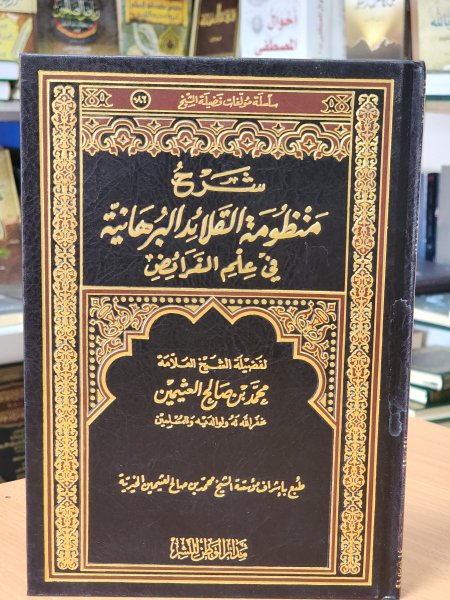 أحوال
المصطفى
سلسلة مؤلفات فضيلة الشيخ
شرح
منظومة القلائد البرهانية
في علم الفرائض
لفضيلة الشيخ العلامة
محمد بن صالح العثيمين
غفر الله له ولوالديه وللمسلمين
طبع بإشراف مؤسسة الشيخ محمد بن صالح العثيمين الخيرية
مدار الوطن للنشر